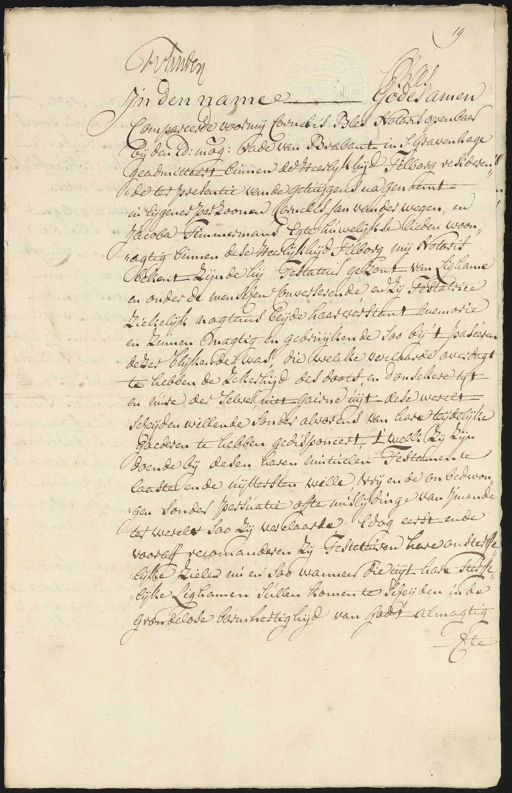 19
In den name Gods amen
Compareerde voor mij Cornelis Bles Notaris openbaar
bij den Ed: mog: Rade van Brabant in S Gravenhage
geadmitteert binnen de Heerlijkhijd Tilborg resideren
de ter presentie van de getuijgens na genoemt
in eijgener persoonen Cornelis Jan van der wegen, en
Jacoba Timmermans Egte huwelijkse lieden woon
agtig binnen dese Heerlijkhijd Tilborg mij Notaris
bekent Zijnde hij Testateur gesont van Lighame
en onder de menschen Converserende en Zij Testatrice
Ziekelijk nogtans beijde haar verstant memorie
en Zinnen magtig en gebruijkende soo bij 't passeren
deser blijkende was, die welke verclaarde overdagt
te hebben de Zekerhijd des doots, en d'onsekere tijt
en uure der selver niet gairne uijt dese werelt
scheijden willende sonder alvorens van hare tijdelijke
goederen te hebben gedisponeert, 't welk Zij Zijn
doende bij desen haren mutuelen Testamente
laaste ende uijttersten wille vrij ende onbedwon
gen sonder persuatie ofte mislijdinge van ijmande
ter werelt soo Zij verclaarde. Edog eerst ende
vooraff recomanderen Zij Testateuren hare onsterffe
lijke Zielen nu en soo wanneer die uijt hare sterffe
lijke Lighamen sullen komen te scheijden in de
grondelose barmhertighijd van Godt almagtig